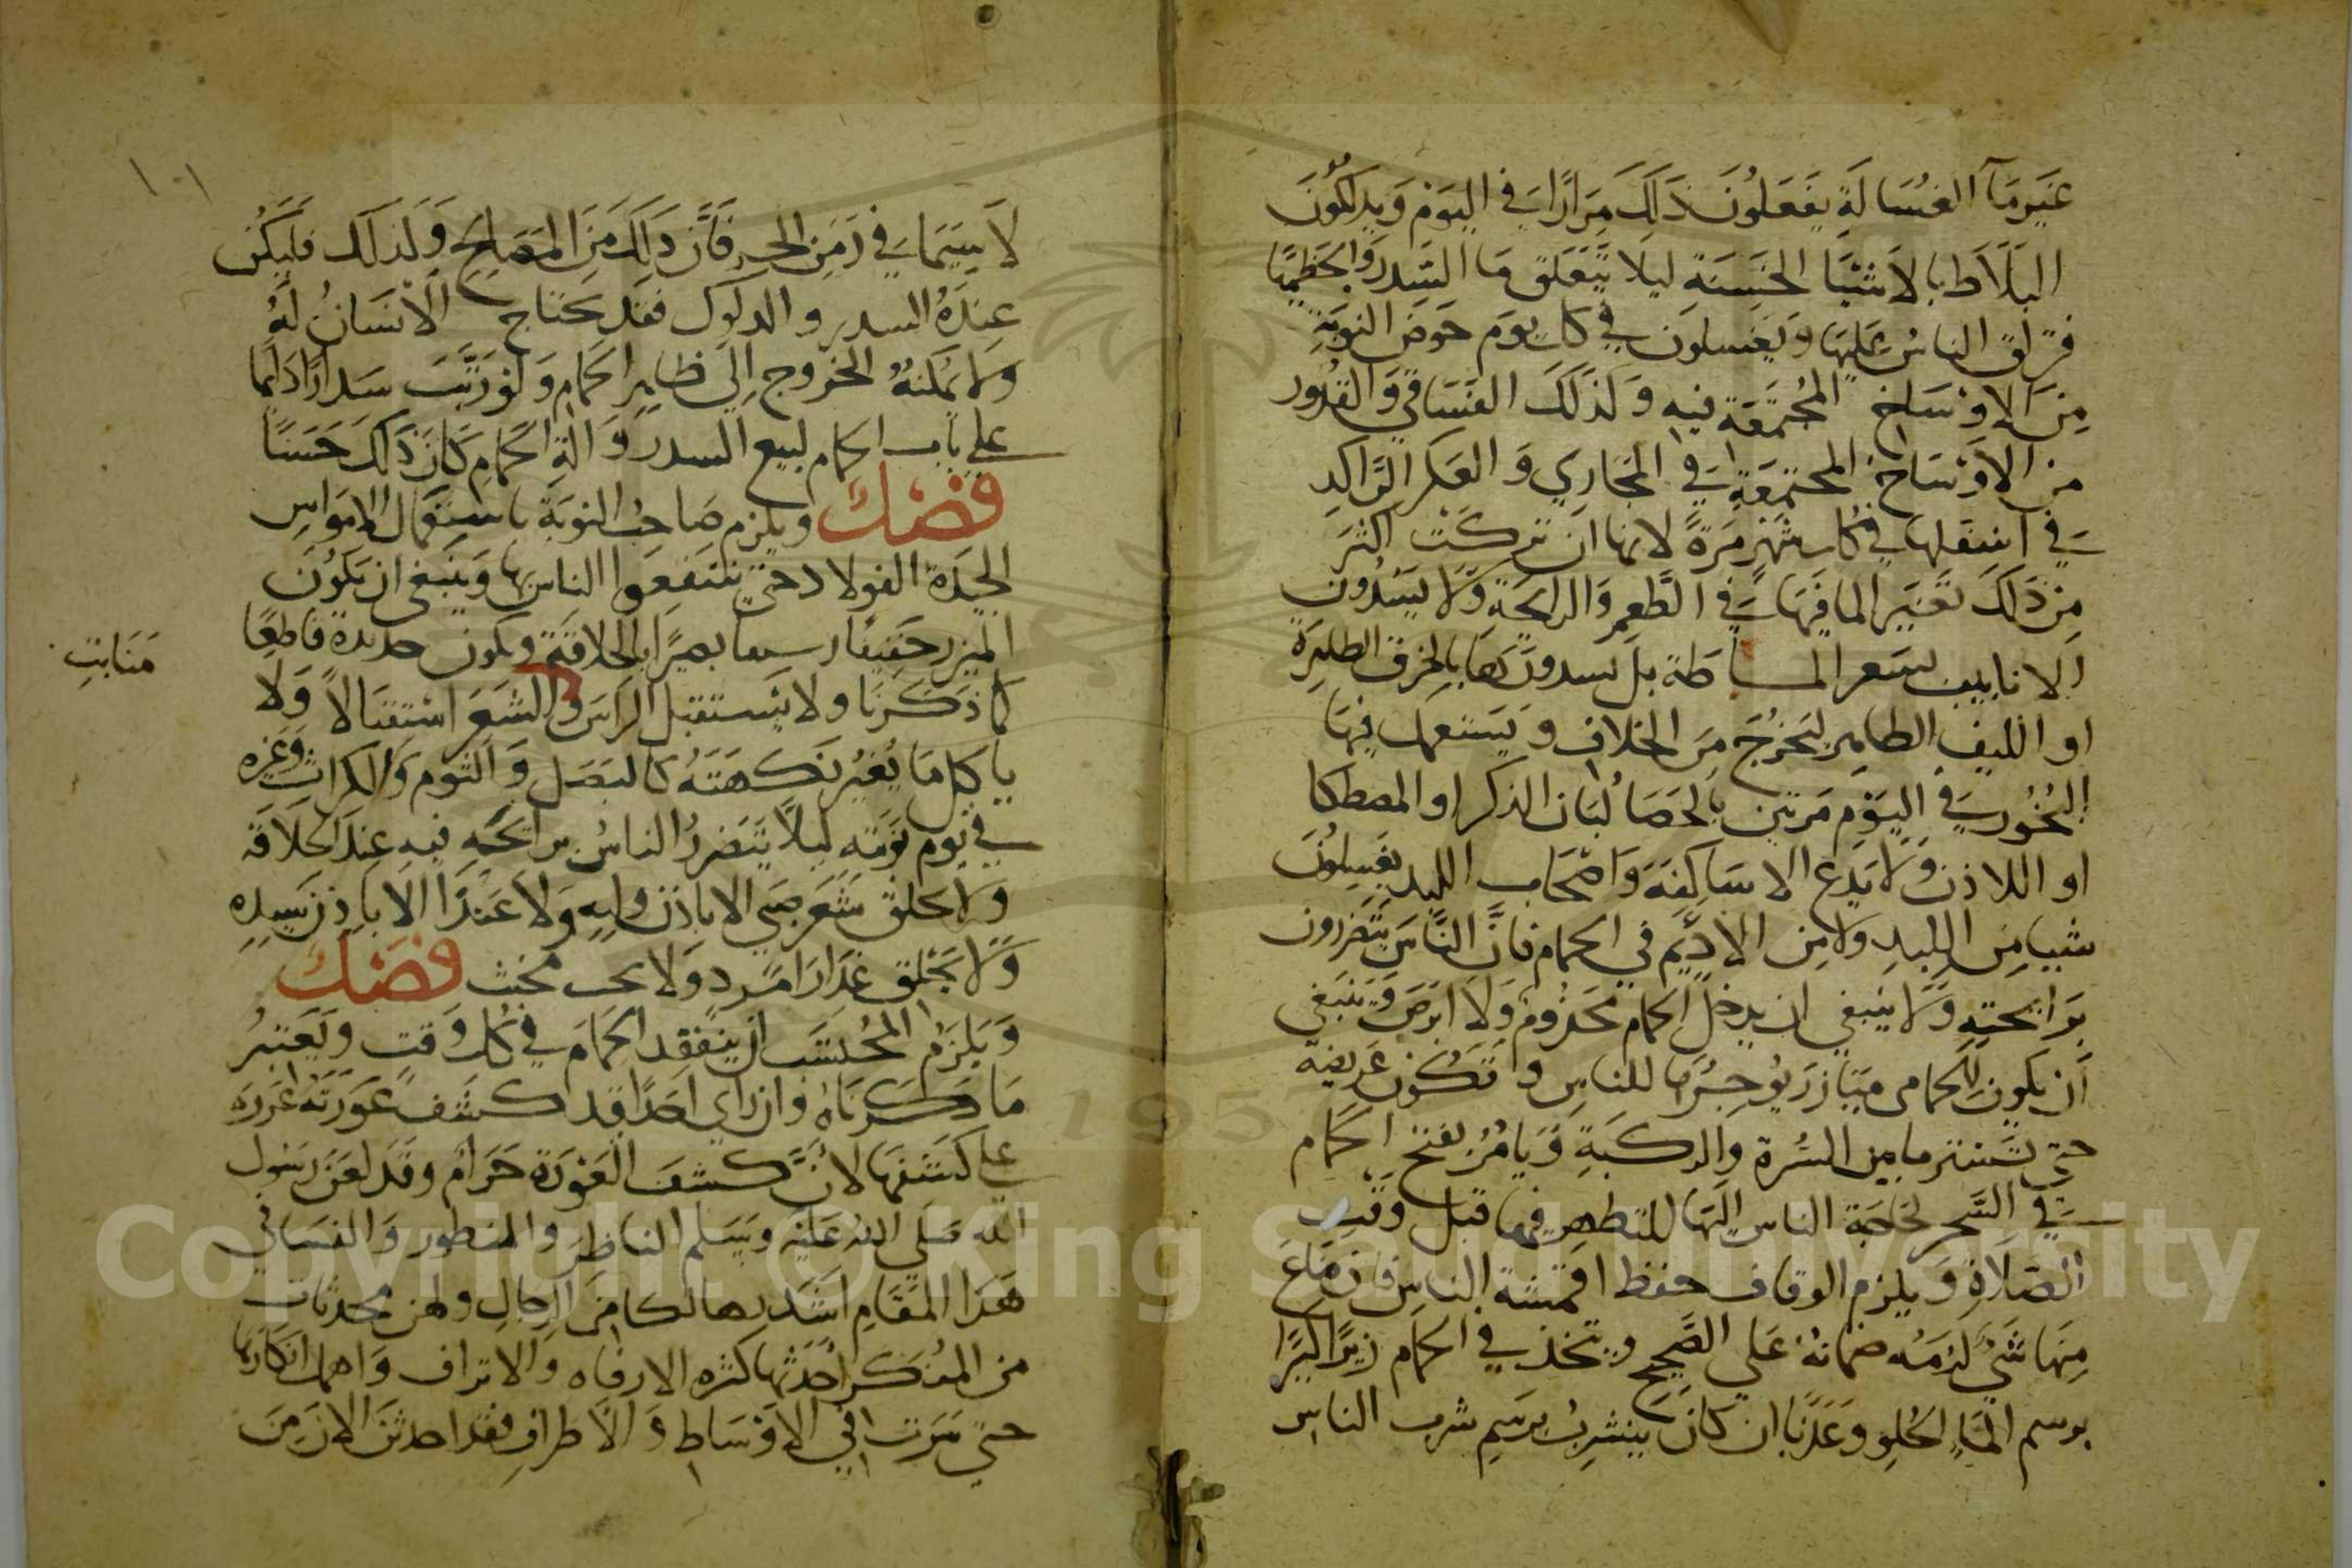 غير مآ الغسالة يفعلون ذلك مرارا في اليوم ويدلكون
البلاط بالاشيا الخشنة ليلا يتعلق مآ السدر والخطميا
فتزلق الناس عليها ويغسلون في كل يوم حوض النوبة
من الاوساخ المجتمعة فيه وكذلك الفساقي والقدور
من الاوساخ المجتمعة في المجاري والعكر الراكد
في اسفلها في كل شهر مرة لانها ان تركت اكثر
من ذلك تغير الما فيها في الطعم والرايحة ولا يسدون
الانابيب بشعر المساطة بل يسدونها بالخرق الطاهرة
او الليف الطاهر ليخرج من الخلاف ويستعمل فيها
البخور في اليوم مرتين بالحصا لبان الذكر او المصطكا
او اللاذن ولا يدع الاساكفة واصحاب اللبد يغسلون
شيا من اللبد ولا من الاديم في الحمام فان الناس يتضررون
برايحته ولا ينبغي ان يدخل الحمام مجذوم ولا ابرص وينبغي
ان يكون للحمامي ميازر يوجرها للناس وتكون عريضة
حتى تستر ما بين السرة والركبة ويامر بفتح الحمام
في السحر لحاجة الناس اليها للتطهر فيها قبل وقت
الصلاة ويلزم الوقاف حفظ اقمشة الناس فان ضاع
منها شي لزمه ضمانه على الصحيح ويتخذ في الحمام زيرا كبيرا
برسم الماء الحلو وعذبا ان كان ينشرب برسم شرب الناس
١٠١
لا سيما في زمن الحر فان ذلك من المصالح وكذلك فليكن
عنده السدر والدلوك فقد يحتاج الانسان له
ولا يمكنه الخروج الى ظاهر الحمام ولو رتب سدارا دايما
على باب الحمام لبيع السدر وآلة الحمام كان ذلك حسنا
فصل ويلزم صاحب النوبة باستعمال الامواس
الجيدة الفولاد حتى ينتفعوا الناس بها وينبغي ان يكون
المزين خفيفا رسيقا بصيرا بالحلاقة ويكون حديده قاطعا
كما ذكرنا ولا يستقبل الراس والشعر استقبالا ولا
منابت
ياكل ما يغير نكهته كالبصل والثوم والكراث وغيره
في يوم نوبته ليلا يتضرر الناس برايحة فيه عند الحلاقة
ولا يحلق شعر صبي الا باذن وليه ولا عبدا الا باذن سيده
ولا يحلق عذار امرد ولا لحيت مخنث فصل
ويلزم المحتسب ان يتفقد الحمام في كل وقت ويعتبر
ما ذكرناه وان راي احدا قد كشف عورته عزره
على كشفها لان كشف العورة حرام وقد لعن رسول
الله صلى الله عليه وسلم الناظر والمنظور والنساء في
هذا المقام اشد تهالكا من الرجال ولهن محدثات
من المنكر احدثها كثرة الارفاه والاتراف واهمل انكارها
حتى سرت في الاوساط والاطراف فقد احدثن الان من
Copyright © King Saud University
1957